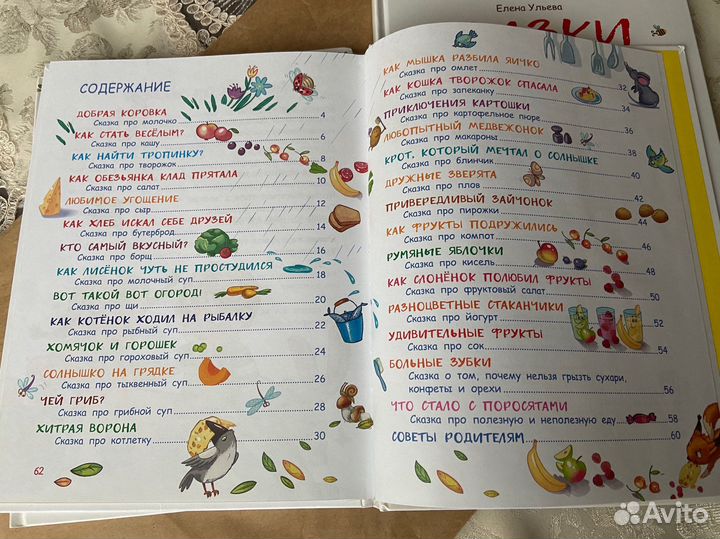 Елена Ульева
СОДЕРЖАНИЕ
ДОБРАЯ КОРОВКА
Сказка про молочко 4
КАК СТАТЬ ВЕСЁЛЫМ?
Сказка про кашу 6
КАК НАЙТИ ТРОПИНКУ?
Сказка про творожок 8
КАК ОБЕЗЬЯНКА КЛАД ПРЯТАЛА
Сказка про салат 10
ЛЮБИМОЕ УГОЩЕНИЕ
Сказка про сыр 12
КАК ХЛЕБ ИСКАЛ СЕБЕ ДРУЗЕЙ
Сказка про бутерброд 14
КТО САМЫЙ ВКУСНЫЙ?
Сказка про борщ 16
КАК ЛИСЁНОК ЧУТЬ НЕ ПРОСТУДИЛСЯ
Сказка про молочный суп 18
ВОТ ТАКОЙ ВОТ ОГОРОД!
Сказка про щи 20
КАК КОТЁНОК ХОДИЛ НА РЫБАЛКУ
Сказка про рыбный суп 22
ХОМЯЧОК И ГОРОШЕК
Сказка про гороховый суп 24
СОЛНЫШКО НА ГРЯДКЕ
Сказка про тыквенный суп 26
ЧЕЙ ГРИБ?
Сказка про грибной суп 28
ХИТРАЯ ВОРОНА
Сказка про котлетку 30
62
КАК МЫШКА РАЗБИЛА ЯИЧКО
Сказка про омлет 32
КАК КОШКА ТВОРОЖОК СПАСАЛА
Сказка про запеканку 34
ПРИКЛЮЧЕНИЯ КАРТОШКИ
Сказка про картофельное пюре 36
ЛЮБОПЫТНЫЙ МЕДВЕЖОНОК
Сказка про макароны 38
КРОТ, КОТОРЫЙ МЕЧТАЛ О СОЛНЫШКЕ
Сказка про блинчик 40
ДРУЖНЫЕ ЗВЕРЯТА
Сказка про плов 42
ПРИВЕРЕДЛИВЫЙ ЗАЙЧОНОК
Сказка про пирожки 44
КАК ФРУКТЫ ПОДРУЖИЛИСЬ
Сказка про компот 46
РУМЯНЫЕ ЯБЛОЧКИ
Сказка про кисель 48
КАК СЛОНЁНОК ПОЛЮБИЛ ФРУКТЫ
Сказка про фруктовый салат 50
РАЗНОЦВЕТНЫЕ СТАКАНЧИКИ
Сказка про йогурт 52
УДИВИТЕЛЬНЫЕ ФРУКТЫ
Сказка про сок 54
БОЛЬНЫЕ ЗУБКИ
Сказка о том, почему нельзя грызть сухари,
конфеты и орехи 56
ЧТО СТАЛО С ПОРОСЯТАМИ
Сказка про полезную и неполезную еду 58
СОВЕТЫ РОДИТЕЛЯМ 60
Avito